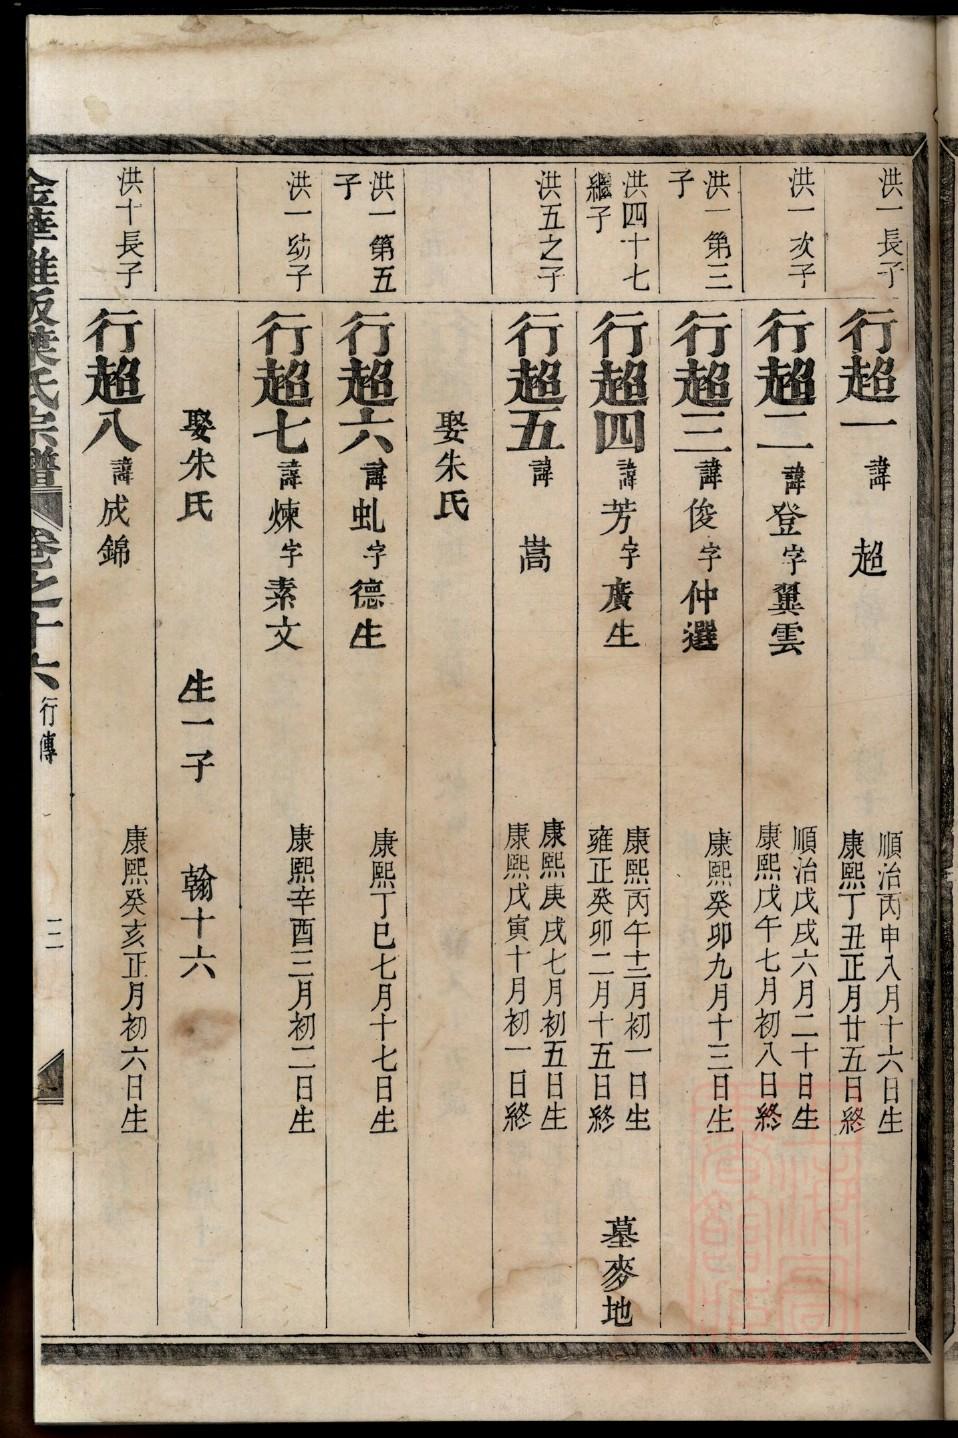 洪一長子
行超一 諱 超 順治丙申八月十六日生
康熙丁丑正月廿五日終
洪一次子
行超二 諱登字翼雲 順治戊戌六月二十日生
康熙戊午七月初八日終
洪一第三子
行超三 諱俊字仲選 康熙癸卯九月十三日生
洪四十七繼子
行超四 諱芳字廣生 康熙丙午十二月初一日生
雍正癸卯二月十五日終 墓麥地
洪五之子
行超五 諱 嵩 康熙庚戌七月初五日生
康熙戊寅十月初一日終
娶朱氏
洪一第五子
行超六 諱虬字德生 康熙丁巳七月十七日生
洪一幼子
行超七 諱煉字素文 康熙辛酉三月初二日生
娶朱氏 生一子 翰十六
洪十長子
行超八 諱成錦 康熙癸亥正月初六日生
金華雅畈葉氏宗譜 卷之十六 行傳 二